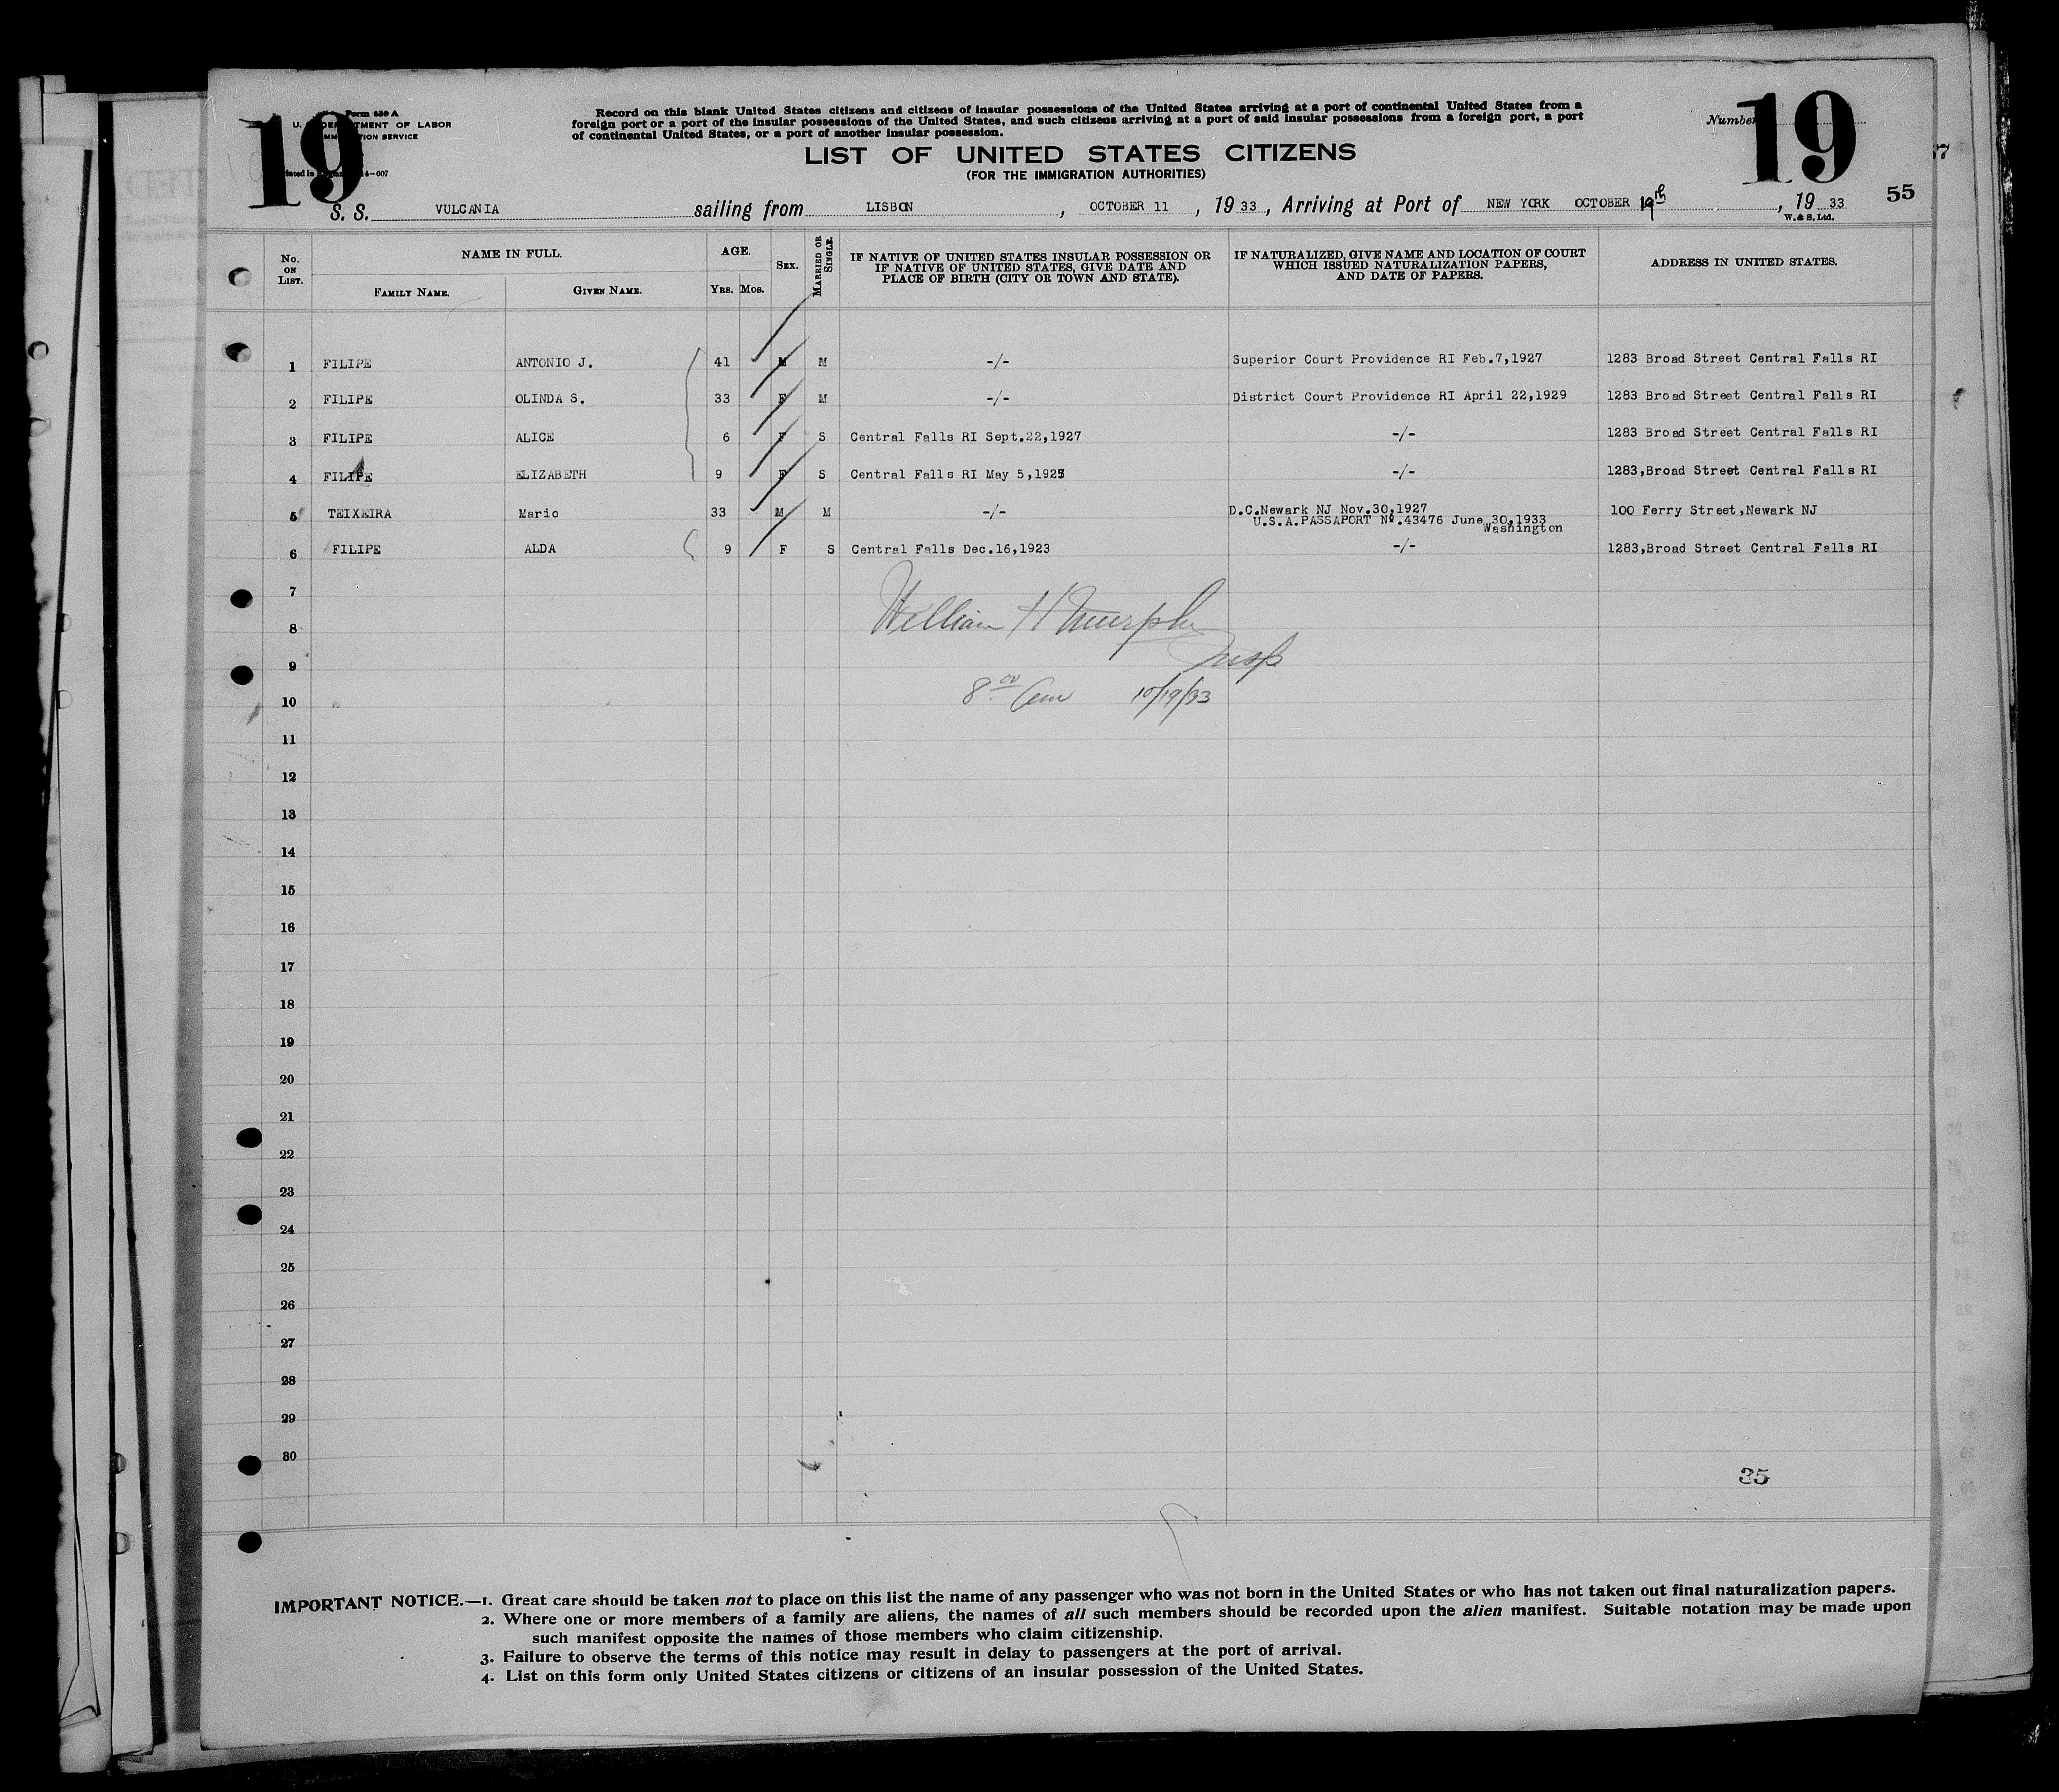 19
Form 630 A
U. DEPARTMENT OF LABOR
IMMIGRATION SERVICE
Printed in 14-607
Record on this blank United States citizens and citizens of insular possessions of the United States arriving at a port of continental United States from a
foreign port or a port of the insular possessions of the United States, and such citizens arriving at a port of said insular possessions from a foreign port, a port
of continental United States, or a port of another insular possession.
Number 19
LIST OF UNITED STATES CITIZENS
(FOR THE IMMIGRATION AUTHORITIES)
55
S. S. VULCANIA sailing from LISBON , OCTOBER 11 , 19 33 , Arriving at Port of NEW YORK OCTOBER 19th , 19 33
W. & S. Ltd.
No. ON LIST. NAME IN FULL. AGE. SEX. MARRIED OR SINGLE. IF NATIVE OF UNITED STATES INSULAR POSSESSION OR IF NATIVE OF UNITED STATES, GIVE DATE AND PLACE OF BIRTH (CITY OR TOWN AND STATE). IF NATURALIZED, GIVE NAME AND LOCATION OF COURT WHICH ISSUED NATURALIZATION PAPERS, AND DATE OF PAPERS. ADDRESS IN UNITED STATES.
FAMILY NAME. GIVEN NAME. YRS. MOS.
1 FILIPE ANTONIO J. 41 M M -/- Superior Court Providence RI Feb.7,1927 1283 Broad Street Central Falls RI
2 FILIPE OLINDA S. 33 F M -/- District Court Providence RI April 22,1929 1283 Broad Street Central Falls RI
3 FILIPE ALICE 6 F S Central Falls RI Sept.22,1927 -/- 1283 Broad Street Central Falls RI
4 FILIPE ELIZABETH 9 F S Central Falls RI May 5,1925 -/- 1283,Broad Street Central Falls RI
5 TEIXEIRA Mario 33 M M -/- D.C.Newark NJ Nov.30,1927 100 Ferry Street,Newark NJ
U.S.A.PASSAPORT Nº.43476 June 30,1933
Washington
6 FILIPE ALDA 9 F S Central Falls Dec.16,1923 -/- 1283,Broad Street Central Falls RI
7
William H Murphy
8
Insp
9
8 00 Am 10/19/33
10
11
12
13
14
15
16
17
18
19
20
21
22
23
24
25
26
27
28
29
30
35
IMPORTANT NOTICE.—1. Great care should be taken not to place on this list the name of any passenger who was not born in the United States or who has not taken out final naturalization papers.
2. Where one or more members of a family are aliens, the names of all such members should be recorded upon the alien manifest. Suitable notation may be made upon
such manifest opposite the names of those members who claim citizenship.
3. Failure to observe the terms of this notice may result in delay to passengers at the port of arrival.
4. List on this form only United States citizens or citizens of an insular possession of the United States.